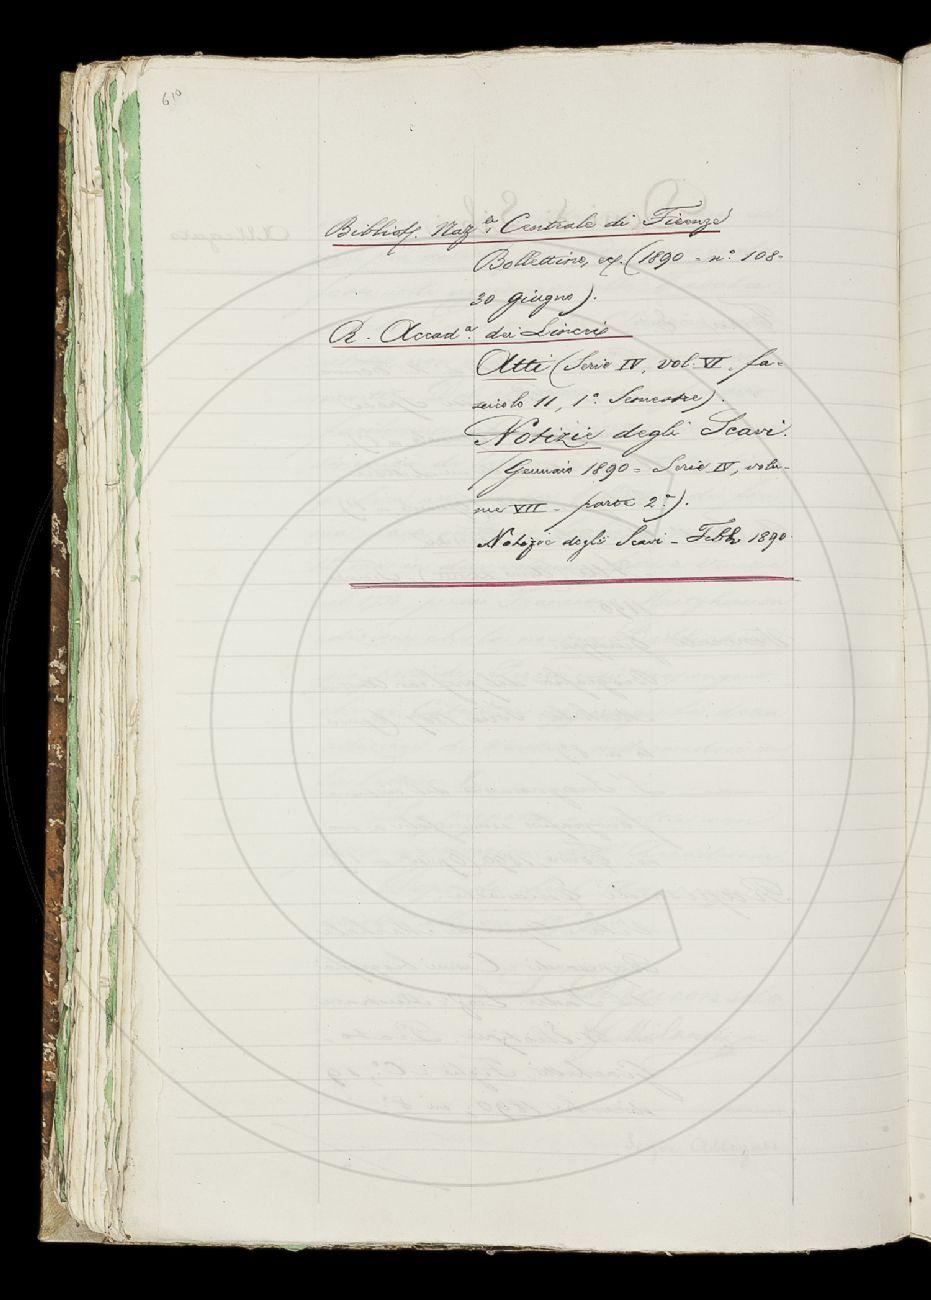 610
Bibliot. Naz.ª Centrale di Firenze
Bollettino, (1890 - n.º 108-
30 giugno).
R. Accad.ª dei Lincei
Atti (Serie IV, vol. VI, fa-
scicolo 11, 1º Semestre).
Notizie degli Scavi.
(Gennaio 1890 = Serie IV, volu-
me VII - parte 2ª).
Notizie degli Scavi - Febb. 1890